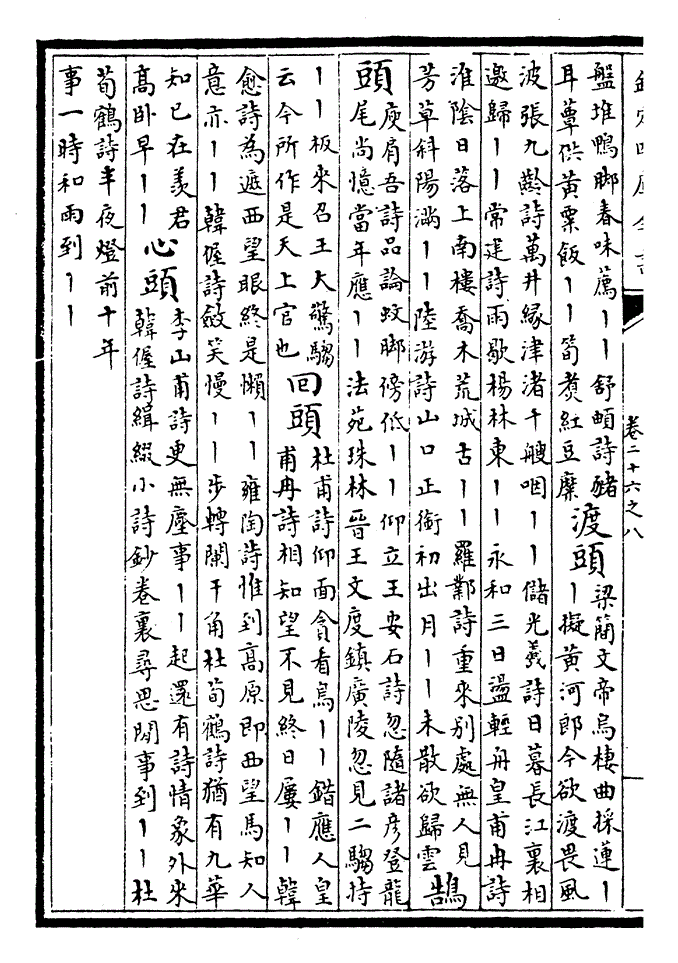 欽定四庫全書
卷二十六之八
盤堆鴨脚春味薦丨丨舒頔詩豬
耳蕈供黃粟飯丨丨筍煮紅豆糜
渡頭
梁簡文帝烏棲曲採蓮丨
丨擬黃河郎今欲渡畏風
波張九齡詩萬井縁津渚千艘咽丨丨儲光羲詩日暮長江裏相
邀歸丨丨常建詩雨歇楊林東丨丨永和三日盪輕舟皇甫冉詩
淮陰日落上南樓喬木荒城古丨丨羅鄴詩重來別處無人見
芳草斜陽滿丨丨陸游詩山口正銜初出月丨丨未散欲歸雲
鵠
頭
庾肩吾詩品論蚊脚傍低丨丨仰立王安石詩忽隨諸彦登龍
尾尚憶當年應丨丨法苑珠林晉王文度鎮廣陵忽見二騶持
丨丨板來召王大驚騶
云今所作是天上官也
回頭
杜甫詩仰面貪看烏丨丨錯應人皇
甫冉詩相知望不見終日屢丨丨韓
愈詩為遮西望眼終是懶丨丨雍陶詩惟到高原即西望馬知人
意亦丨丨韓偓詩斂笑慢丨丨步轉闌干角杜荀鶴詩猶有九華
知已在羨君
高卧早丨丨
心頭
李山甫詩更無塵事丨丨起還有詩情象外來
韓偓詩緝綴小詩鈔卷裏尋思閒事到丨丨杜
荀鶴詩半夜燈前十年
事一時和雨到丨丨